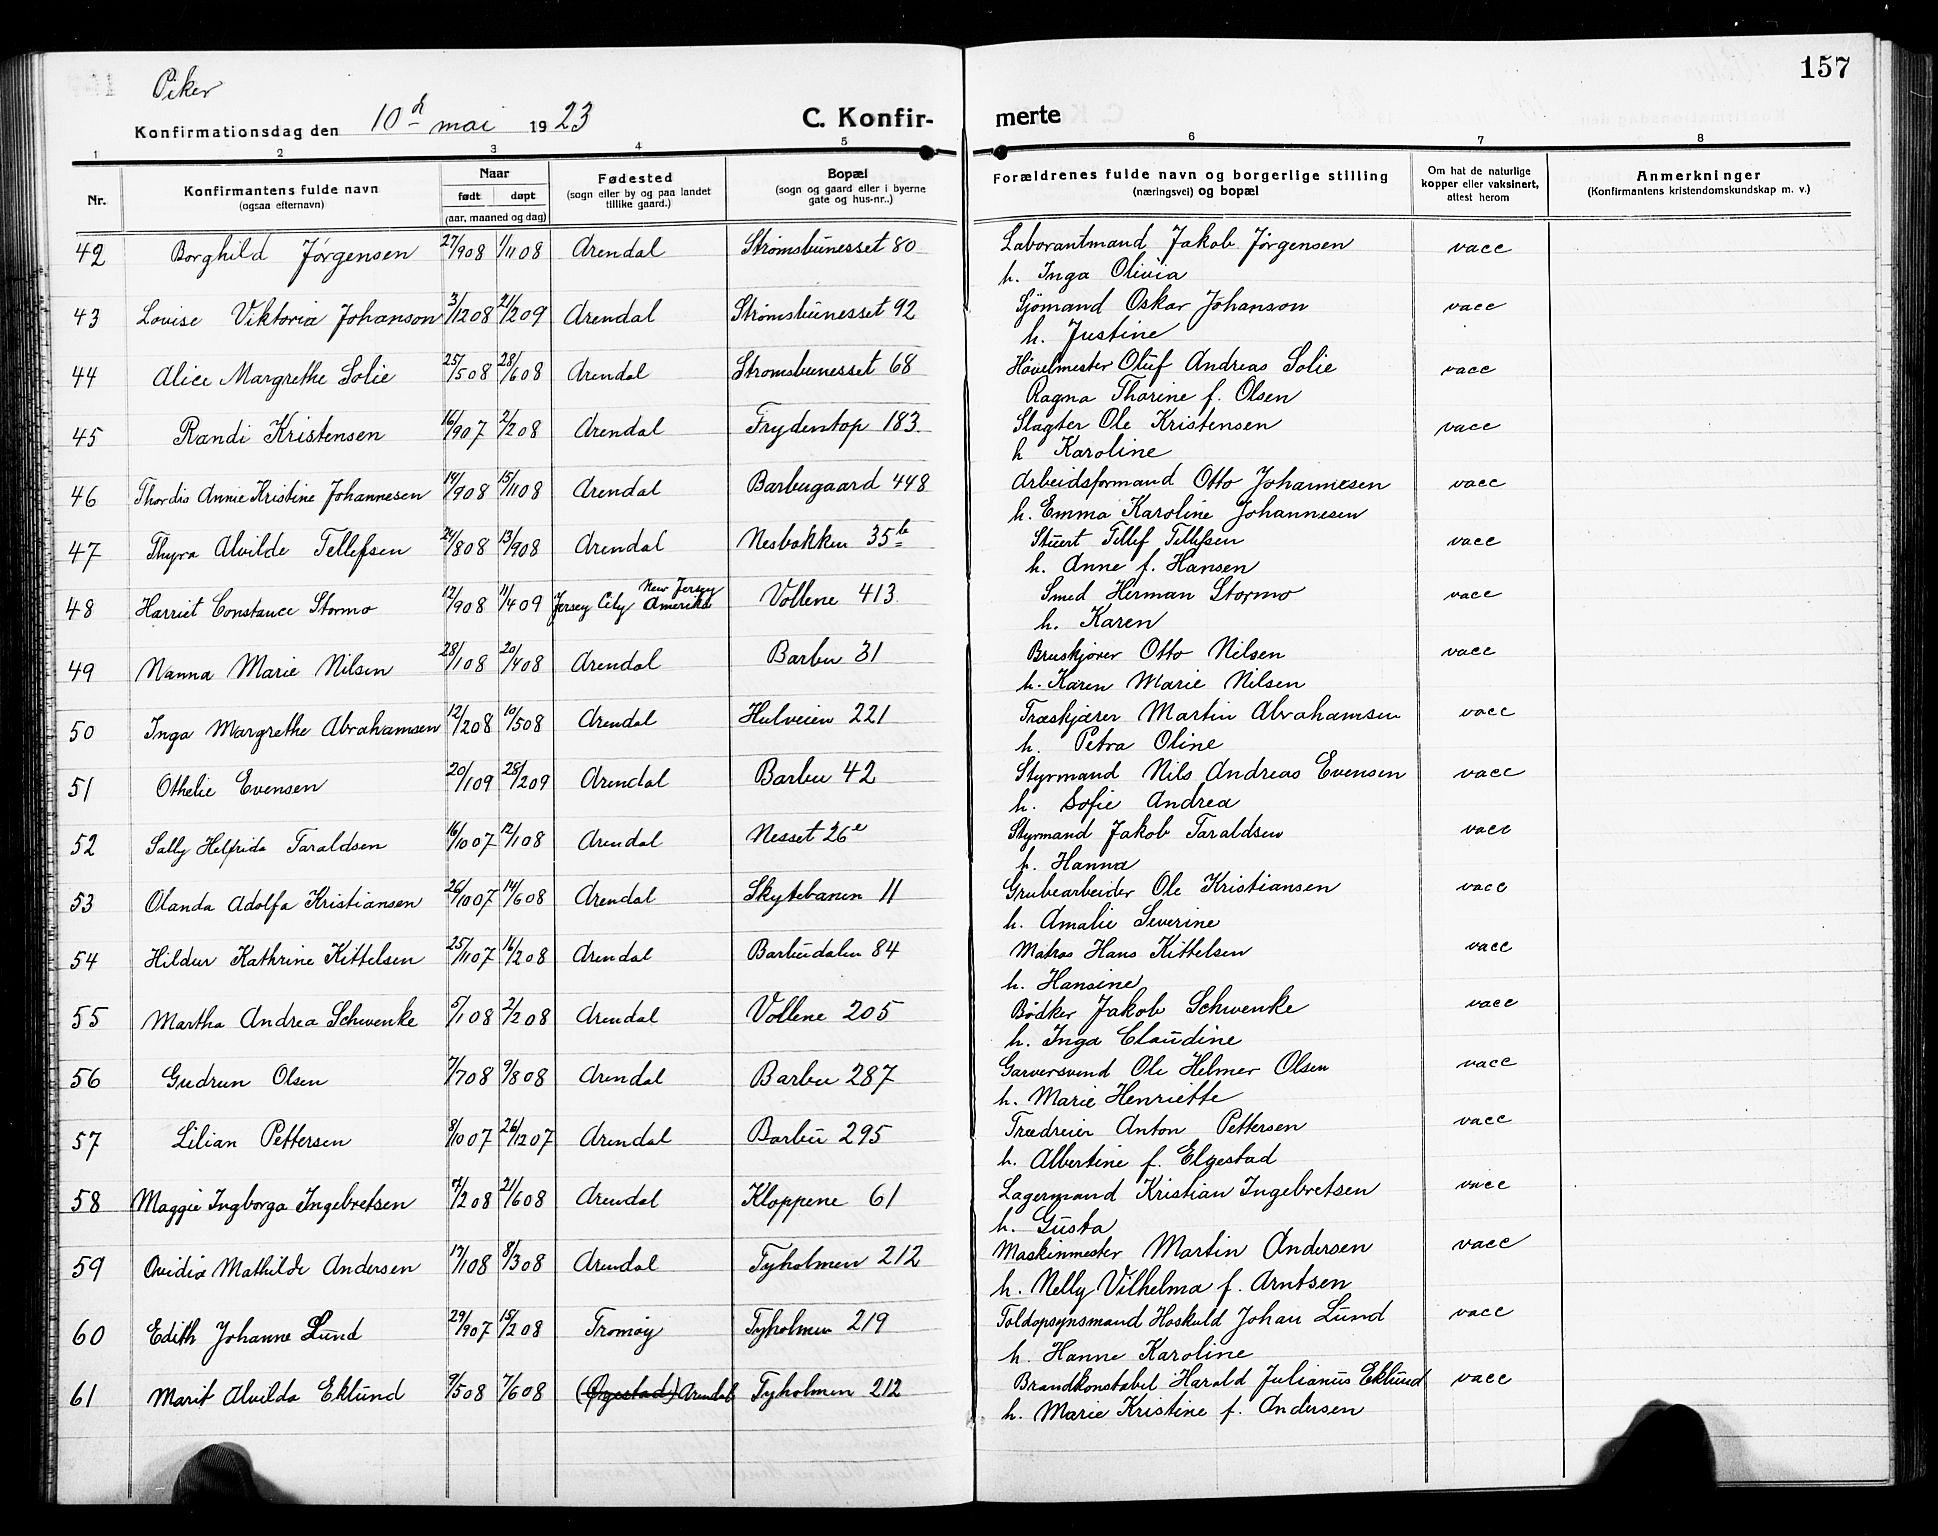 157
Piker
Konfirmationsdag den 10d mai 1923
C. Konfir-
merte
1 2 3 4 5 6 7 8
Nr.
Konfirmantens fulde navn
(ogsaa efternavn)
Naar
født døpt
(aar, maaned og dag)
Fødested
(sogn eller by og paa landet
tillike gaard.)
Bopæl
(sogn og gaard eller i byerne
gate og hus-nr..)
Forældrenes fulde navn og borgerlige stilling
(næringsvei) og bopæl
Om hat de naturlige
kopper eller vaksinert,
attest herom
Anmerkninger
(Konfirmantens kristendomskundskap m. v.)
42 Borghild Jørgensen 27/908 1/1108 Arendal Strømsbunesset 80 Laborantmand Jakob Jørgensen vacc
h. Inga Olivia
43 Lovise Viktoria Johanson 3/1208 21/209 Arendal Strømsbunesset 92 Sjömand Oskar Johanson vacc
h. Justine
44 Alice Margrethe Solie 25/508 28/608 Arendal Strømsbunesset 68 Høvelmester Oluf Andreas Solie vacc
Ragna Thorine f. Olsen
45 Randi Kristensen 16/907 2/208 Arendal Frydentop 183 Slagter Ole Kristensen vacc
h Karoline
46 Thordis Annie Kristine Johannesen 14/908 15/1108 Arendal Barbugaard 448 Arbeidsformand Otto Johannesen vacc
h. Emma Karoline Johannesen
47 Thyra Alvilde Tellefsen 24/808 13/908 Arendal Nesbakken 35b Stuert Tellef Tellefsen vacc
h. Anne f. Hansen
48 Harriet Constance Stormo 12/908 11/409 Jersey City New Jersey Amerika Vollene 413 Smed Herman Stormo vacc
h. Karen
49 Nanna Marie Nilsen 28/108 20/408 Arendal Barbu 31 Bruskjører Otto Nilsen vacc
h. Karen Marie Nilsen
50 Inga Margrethe Abrahamsen 12/208 10/508 Arendal Hulveien 221 Træskjærer Martin Abrahamsen vacc
h. Petra Oline
51 Othelie Evensen 20/109 28/209 Arendal Barbu 42 Styrmand Nils Andreas Evensen vacc
h. Sofie Andrea
52 Sally Helfrida Taraldsen 16/1007 12/108 Arendal Nesset 26e Styrmand Jakob Taraldsen vacc
h. Hanna
53 Olanda Adolfa Kristiansen 26/1007 14/608 Arendal Skytebanen 11 Grubearbeider Ole Kristiansen vacc
h. Amalie Severine
54 Hildur Kathrine Kittelsen 25/1107 16/208 Arendal Barbudalen 84 Matros Hans Kittelsen vacc
h. Hansine
55 Martha Andrea Schwenke 5/108 2/208 Arendal Vollene 205 Bødker Jakob Schwenke vacc
h. Inga Claudine
56 Gudrun Olsen 7/708 9/808 Arendal Barbu 287 Garversvend Ole Helmer Olsen vacc
h. Marie Henriette
57 Lilian Pettersen 8/1007 26/1207 Arendal Barbu 295 Trædreier Anton Pettersen vacc
h. Albertine f. Elgestad
58 Maggie Ingborga Ingebretsen 7/208 21/608 Arendal Kloppene 61 Lagermand Kristian Ingebretsen vacc
h. Gusta
59 Ovidia Mathilde Andersen 17/108 8/308 Arendal Tyholmen 212 Maskinmester Martin Andersen vacc
h. Nelly Vilhelma f. Arntsen
60 Edith Johanne Lund 29/907 15/208 Tromøy Tyholmen 219 Toldopsynsmand Hoskuld Johan Lund vacc
h. Hanne Karoline
61 Marit Alvilda Eklund 9/508 7/608 (Øyestad) Arendal Tyholmen 212 Brandkonstabel Harald Julianus Eklund vacc
h. Marie Kristine f. Andersen